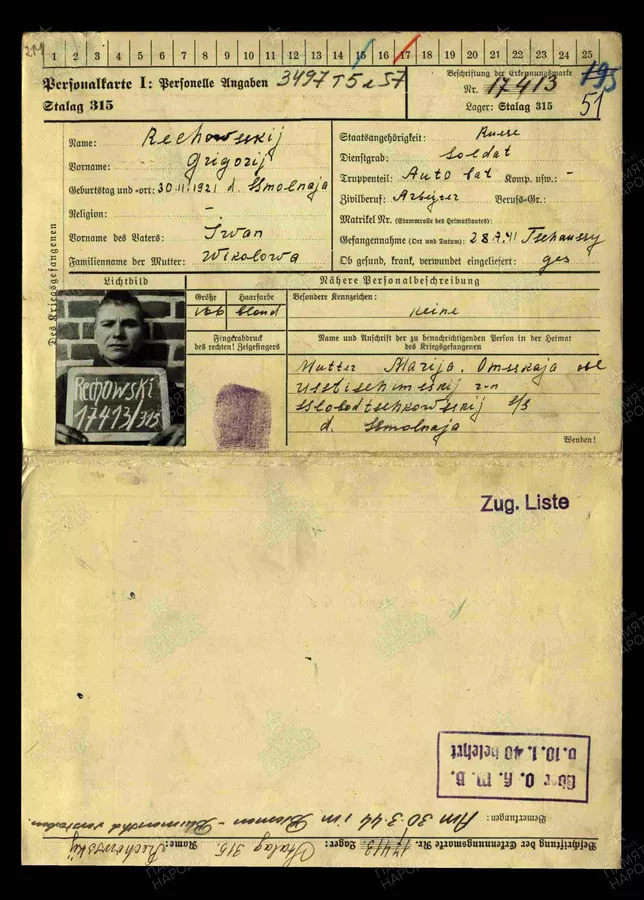 1 2 3 4 5 6 7 8 9 10 11 12 13 14 15 16 17 18 19 20 21 22 23 24 25
Personalkarte I: Personelle Angaben
Stalag 315
Beschriftung der Erkennungsmarke
Nr. 17413
Lager: Stalag 315
51
Des Kriegsgefangenen
Name: Rechowskij
Vorname: Grigorij
Geburtstag und -ort: 30.11.1921 d. Smolnaja
Religion: –
Vorname des Vaters: Iwan
Familienname der Mutter: Wikolowa
Staatsangehörigkeit: Russe
Dienstgrad: Soldat
Truppenteil: Auto bat Komp. usw.: –
Zivilberuf: Arbeiter Berufs-Gr.:
Matrikel Nr. (Stammrolle des Heimatstaates):
Gefangennahme (Ort und Datum): 28.7.41 Tschaussy
Ob gesund, krank, verwundet eingeliefert: ges
Lichtbild
Nähere Personalbeschreibung
Größe Haarfarbe Besondere Kennzeichen:
blond keine
Fingerabdruck
des rechten! Zeigefingers
Name und Anschrift der zu benachrichtigenden Person in der Heimat
des Kriegsgefangenen
Rechowski
17413/315
Mutter Marija. Omsskaja obl
Usstischimskij r-n
Slobodtschikowskij s/s
d. Smolnaja
Wenden!
Zug. Liste
Über O. K. M. B.
v. 10. 1. 40 belehrt
Bemerkungen: Am 30.3.44 im verstorben.
Beschriftung der Erkennungsmarke Nr. 17413 Lager: Stalag 315. Name: Rechowskij
ПАМЯТЬ
НАРОДА